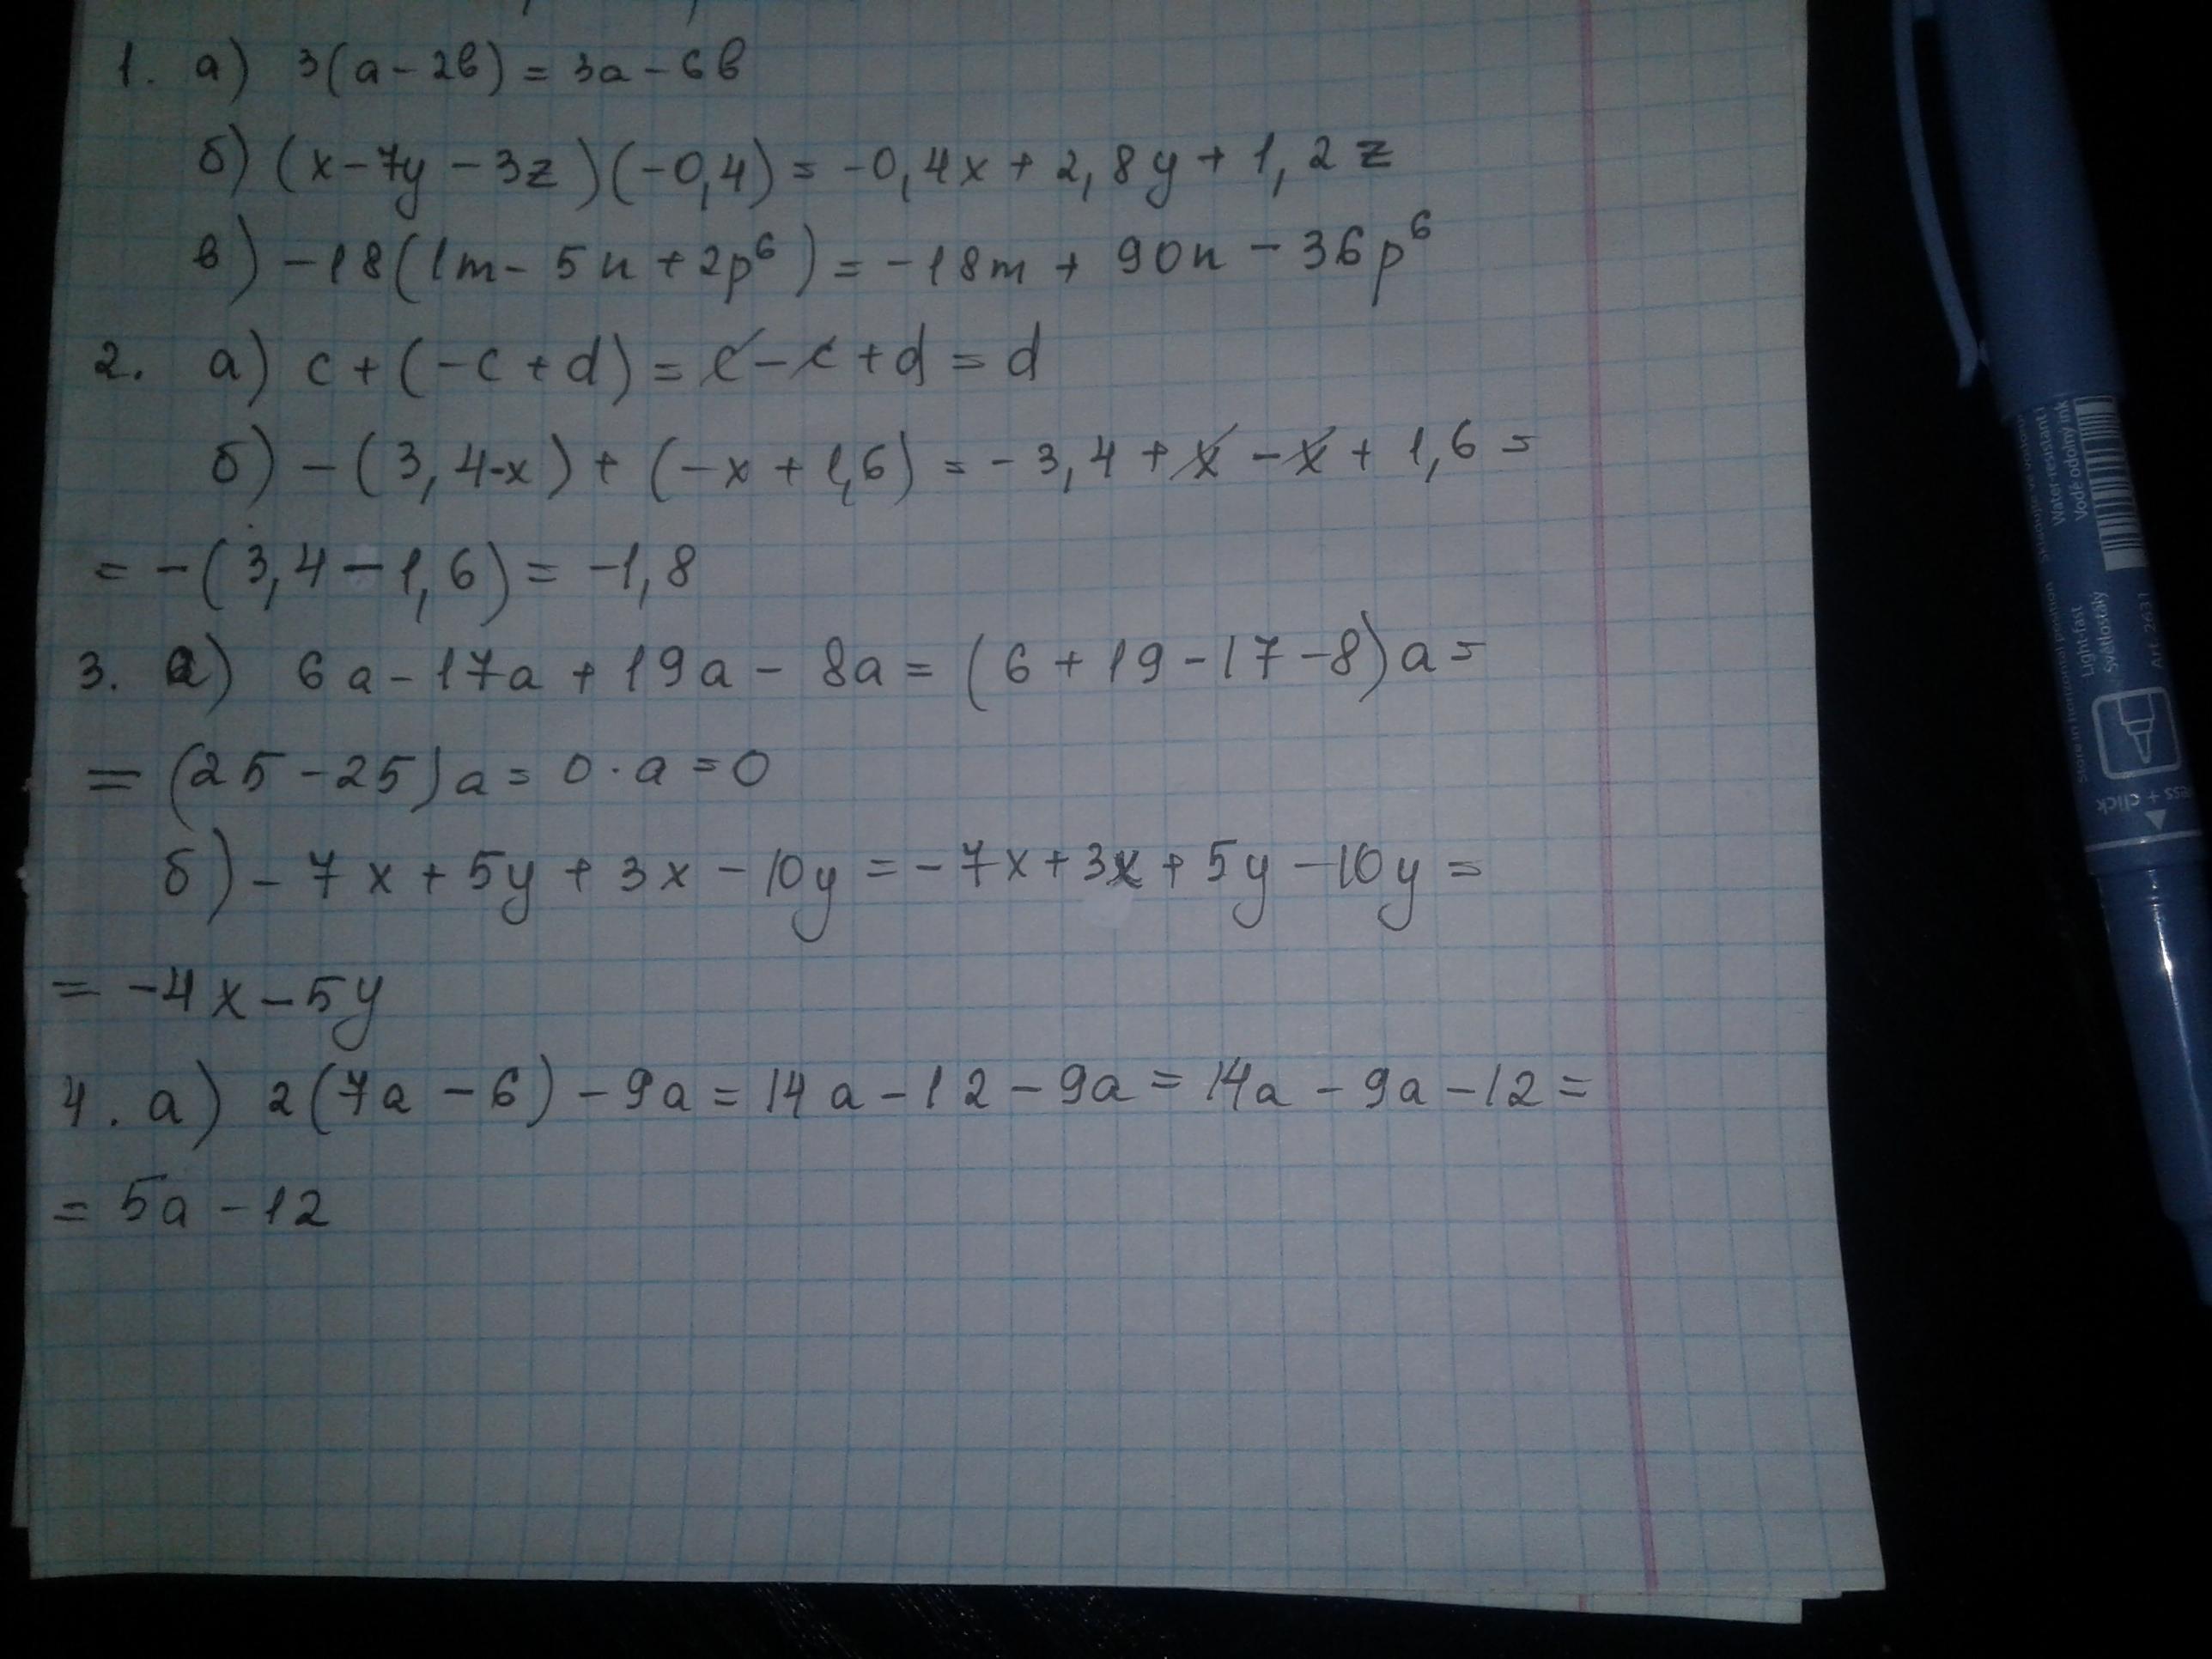 1. а) 3(a-2b) = 3a-6b
б) (x-7y-3z)(-0,4) = -0,4x+2,8y+1,2z
в) -18(1m-5n+2p⁶) = -18m+90n-36p⁶
2. а) c+(-c+d) = c-c+d = d
б) -(3,4-x)+(-x+1,6) = -3,4+x-x+1,6 =
= -(3,4-1,6) = -1,8
3. а) 6a-17a+19a-8a = (6+19-17-8)a =
= (25-25)a = 0·a = 0
б) -7x+5y+3x-10y = -7x+3x+5y-10y =
= -4x-5y
4. а) 2(7a-6)-9a = 14a-12-9a = 14a-9a-12 =
= 5a-12
Water-resistant
Vodě odolný ink
Light-fast
Světlostálý
Art. 2631
Store in horizontal position
ess + click